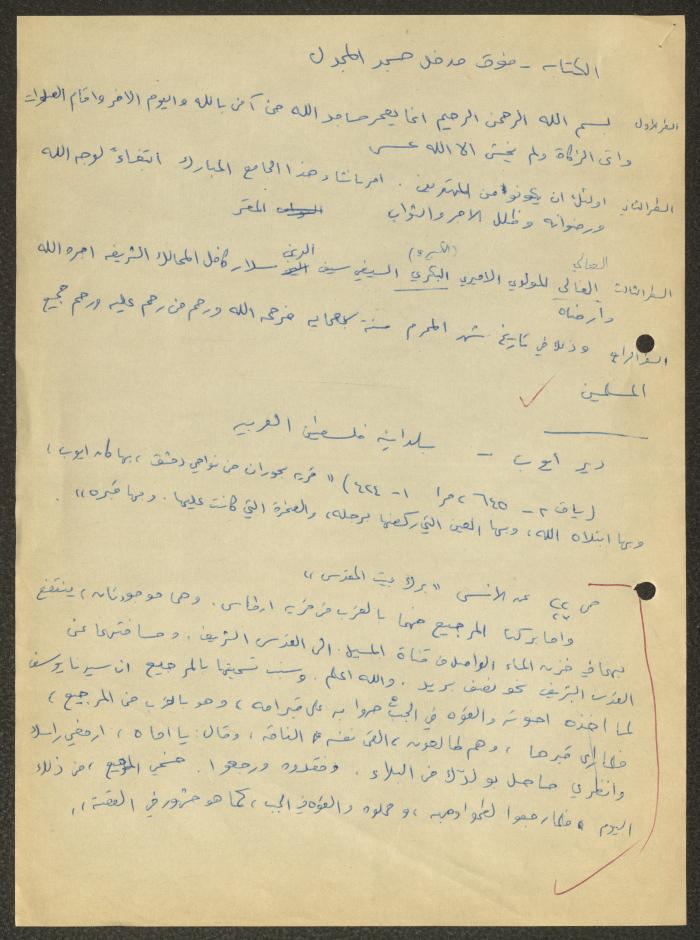 الكتابة - فوق مدخل مسجد المجدل
السطر الاول بسم الله الرحمن الرحيم انما يعمر مساجد الله من آمن بالله واليوم الاخر واقام الصلوات
واتى الزكاة ولم يخش الا الله عسى
السطر الثاني اولئك ان يكونوا من المهتدين . امر بانشاء هذا الجامع المبارك ابتغاءً لوجه الله
ورضوانه وطلب الاجر والثواب المقر
العالي (الكبيري) الدين
السطر الثالث العالي المولوي الاميري البكري السيفي سيف سلار كافل الممالك الشريفه اجره الله
وأرضاه
السطر الرابع وذلك في تاريخ شهر المحرم سنة فرحمه الله ورحم من رحم عليه ورحم جميع
المسلمين
دير ايوب - بلدانية فلسطين العربيه
(ياقوت ٢ - ٦٤٥ ، مرا ١ - ٤٢٤) " قريه بحوران من نواحي دمشق ، بها كان ايوب ،
وبها ابتلاه الله ، وبها العين التي ركضها برجله ، والصخرة التي كانت عليها . وبها قبره " .
ص ٢٢ عن الانس " برك بيت المقدس "
٢٧
واما بركتا المرجيع منهما بالقرب من قرية ارطاس . وهما موجودتان ، ينتفع
بهما في خزن الماء الواصل في قناة السبيل الى القدس الشريف . ومسافتهما عن
القدس الشريف نحو نصف بريد . والله اعلم . وسبب تسميتها بالمرجيع ان سيدنا يوسف
لما اخذه اخوته والقوه في الجب مروا به على قبر امه ، وهو بالقرب من المرجيع ،
فلما رأى قبرها ، وهم لها لعون ، القى نفسه الناقه ، وقال : يا اماه ، ارفعي راسك
وانظري ما حل بولدك من البلاء . وفقدوه ورجعوا . فسمي المرجيع ، من ذلك
اليوم . فلما رجعوا لطموا وجهه ، وحملوه والقوه في الجب ، كما هو مشهور في القصة "